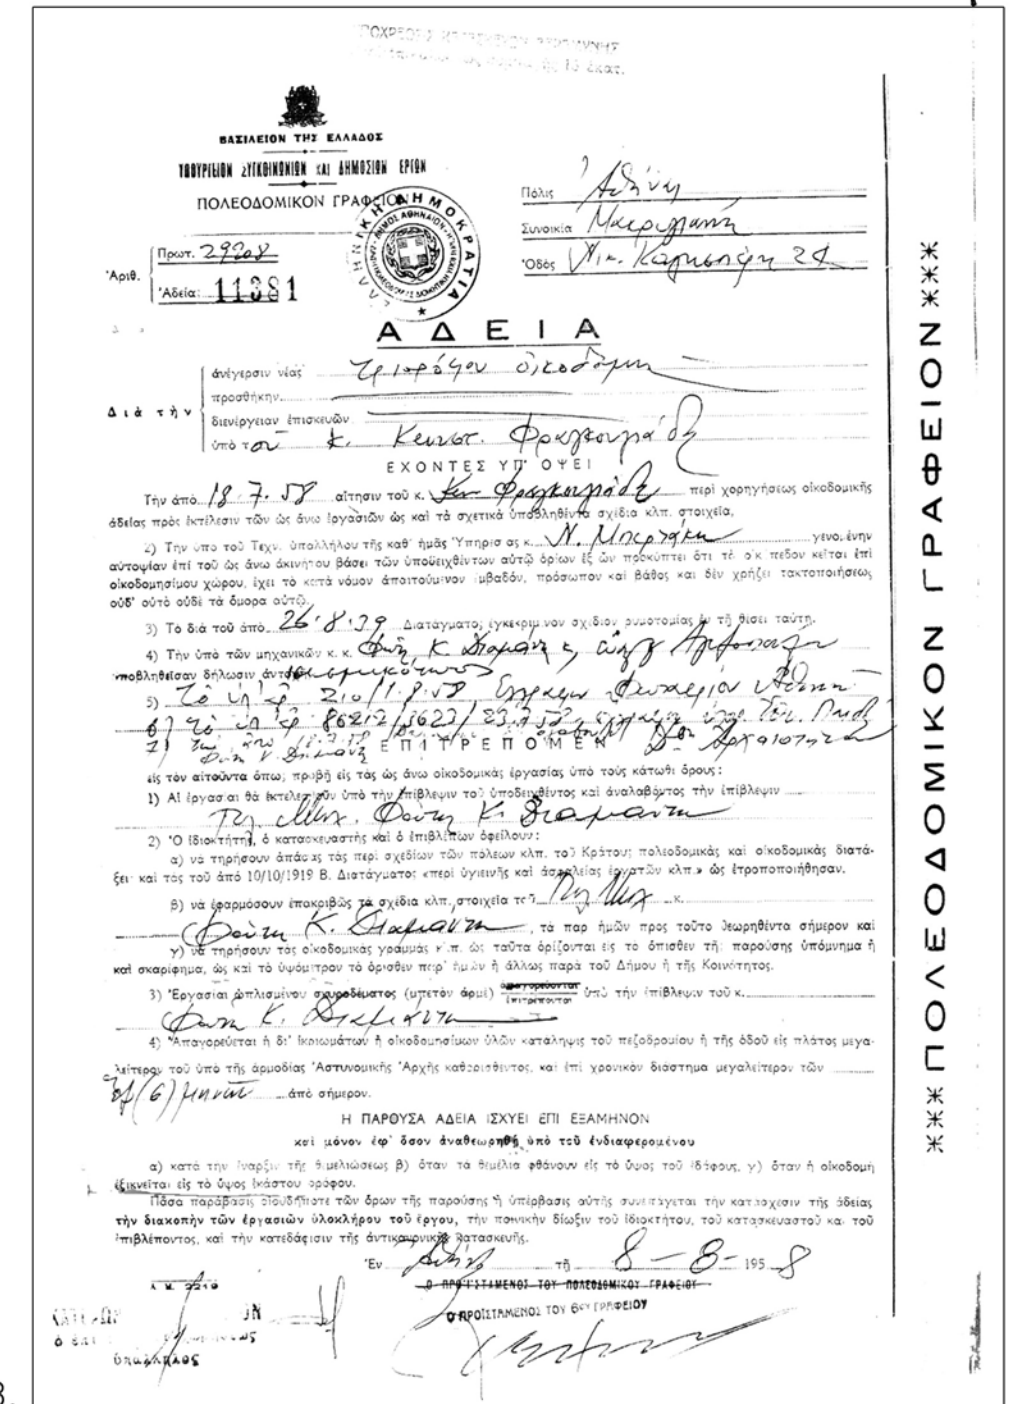 ΒΑΣΙΛΕΙΟΝ ΤΗΣ ΕΛΛΑΔΟΣ
ΥΠΟΥΡΓΕΙΟΝ ΣΥΓΚΟΙΝΩΝΙΩΝ ΚΑΙ ΔΗΜΟΣΙΩΝ ΕΡΓΩΝ
ΠΟΛΕΟΔΟΜΙΚΟΝ ΓΡΑΦΕΙΟΝ
ΕΛΛΗΝΙΚΗ ΔΗΜΟΚΡΑΤΙΑ
ΔΗΜΟΣ ΑΘΗΝΑΙΩΝ
Πόλις Ἀθῆναι
Συνοικία Μακρυγιάννη
Ὁδὸς Νικ. 
Ἀριθ.
Πρωτ. 29208
Ἀδεία: 11381
ΑΔΕΙΑ
Διὰ τὴν
ἀνέγερσιν νέας τριορόφου οἰκοδομῆς
προσθήκην
διενέργειαν ἐπισκευῶν
ὑπὸ τοῦ κ. Κωνστ. Φραγκουλιάδη
ΕΧΟΝΤΕΣ ΥΠ' ΟΨΕΙ
Τὴν ἀπὸ 18.7.58 αἴτησιν τοῦ κ. Κων. Φραγκουλιάδη περὶ χορηγήσεως οἰκοδομικῆς
ἀδείας πρὸς ἐκτέλεσιν τῶν ὡς ἄνω ἐργασιῶν ὡς καὶ τὰ σχετικὰ ὑποβληθέντα σχέδια κλπ. στοιχεῖα,
2) Τὴν ὑπὸ τοῦ Τεχν. ὑπαλλήλου τῆς καθ' ἡμᾶς Ὑπηρεσίας κ. Ν. γενομένην
αὐτοψίαν ἐπὶ τοῦ ὡς ἄνω ἀκινήτου βάσει τῶν ὑποδειχθέντων αὐτῷ ὁρίων ἐξ ὧν προκύπτει ὅτι τὸ οἰκόπεδον κεῖται ἐπὶ
οἰκοδομησίμου χώρου, ἔχει τὸ κατὰ νόμον ἀπαιτούμενον ἐμβαδόν, πρόσωπον καὶ βάθος καὶ δὲν χρήζει τακτοποιήσεως
οὐδ' αὐτὸ οὐδὲ τὰ ὅμορα αὐτῷ.
3) Τὸ διὰ τοῦ ἀπὸ 26.8.39 Διατάγματος ἐγκεκριμένον σχέδιον ρυμοτομίας ἐν τῇ θέσει ταύτῃ.
4) Τὴν ὑπὸ τῶν μηχανικῶν κ. κ. Φώτη Κ. Διαμάντη
ὑποβληθεῖσαν δήλωσιν
5) Τὸ ὑπ' ἀρ. 210/1.8.58 ἔγγραφον Ἀθηνῶν
6) Τὸ ὑπ' ἀρ. 86212/3623/23.7.58 ἔγγραφον
7) ΕΠΙΤΡΕΠΟΜΕΝ
εἰς τὸν αἰτοῦντα ὅπως προβῇ εἰς τὰς ὡς ἄνω οἰκοδομικὰς ἐργασίας ὑπὸ τοὺς κάτωθι ὅρους:
1) Αἱ ἐργασίαι θὰ ἐκτελεσθοῦν ὑπὸ τὴν ἐπίβλεψιν τοῦ ὑποδειχθέντος καὶ ἀναλαβόντος τὴν ἐπίβλεψιν
Πολ. Μηχ. Φώτη Κ. Διαμάντη
2) Ὁ ἰδιοκτήτης, ὁ κατασκευαστὴς καὶ ὁ ἐπιβλέπων ὀφείλουν:
α) νὰ τηρήσουν ἁπάσας τὰς περὶ σχεδίων τῶν πόλεων κλπ. τοῦ Κράτους πολεοδομικὰς καὶ οἰκοδομικὰς διατά-
ξεις καὶ τὰς τοῦ ἀπὸ 10/10/1919 Β. Διατάγματος «περὶ ὑγιεινῆς καὶ ἀσφαλείας ἐργατῶν κλπ.» ὡς ἐτροποποιήθησαν.
β) νὰ ἐφαρμόσουν ἐπακριβῶς τὰ σχέδια κλπ. στοιχεῖα τοῦ Πολ. Μηχ. κ.
Φώτη Κ. Διαμάντη, τὰ παρ ἡμῶν πρὸς τοῦτο θεωρηθέντα σήμερον καὶ
γ) νὰ τηρήσουν τὰς οἰκοδομικὰς γραμμὰς κ.π. ὡς ταῦτα ὁρίζονται εἰς τὸ ὄπισθεν τῆς παρούσης ὑπόμνημα ἢ
καὶ σκαρίφημα, ὡς καὶ τὸ ὑψόμετρον τὸ ὁρισθὲν παρ' ἡμῶν ἢ ἄλλως παρὰ τοῦ Δήμου ἢ τῆς Κοινότητος.
3) Ἐργασίαι ὡπλισμένου σκυροδέματος (μπετὸν ἀρμὲ) ἀπαγορεύονται ἐπιτρέπονται ὑπὸ τὴν ἐπίβλεψιν τοῦ κ.
Φώτη Κ. Διαμάντη
4) Ἀπαγορεύεται ἡ δι' ἰκριωμάτων ἢ οἰκοδομησίμων ὑλῶν κατάληψις τοῦ πεζοδρομίου ἢ τῆς ὁδοῦ εἰς πλάτος μεγα-
λείτερον τοῦ ὑπὸ τῆς ἁρμοδίας Ἀστυνομικῆς Ἀρχῆς καθορισθέντος, καὶ ἐπὶ χρονικὸν διάστημα μεγαλείτερον τῶν
ἕξ (6) μηνῶν ἀπὸ σήμερον.
Η ΠΑΡΟΥΣΑ ΑΔΕΙΑ ΙΣΧΥΕΙ ΕΠΙ ΕΞΑΜΗΝΟΝ
καὶ μόνον ἐφ' ὅσον ἀναθεωρηθῇ ὑπὸ τοῦ ἐνδιαφερομένου
α) κατὰ τὴν ἔναρξιν τῆς θεμελιώσεως β) ὅταν τὰ θεμέλια φθάνουν εἰς τὸ ὕψος τοῦ ἐδάφους, γ) ὅταν ἡ οἰκοδομὴ
ἐξικνεῖται εἰς τὸ ὕψος ἑκάστου ὀρόφου.
Πᾶσα παράβασις οἱουδήποτε τῶν ὅρων τῆς παρούσης ἢ ὑπέρβασις αὐτῆς συνεπάγεται τὴν κατάσχεσιν τῆς ἀδείας
τὴν διακοπὴν τῶν ἐργασιῶν ὁλοκλήρου τοῦ ἔργου, τὴν ποινικὴν δίωξιν τοῦ ἰδιοκτήτου, τοῦ κατασκευαστοῦ καὶ τοῦ
ἐπιβλέποντος, καὶ τὴν κατεδάφισιν τῆς ἀντικανονικῆς κατασκευῆς.
Ἐν Ἀθήναις τῇ 8-8-1958
Ο ΠΡΟΪΣΤΑΜΕΝΟΣ ΤΟΥ ΠΟΛΕΟΔΟΜΙΚΟΥ ΓΡΑΦΕΙΟΥ
Ο ΠΡΟΪΣΤΑΜΕΝΟΣ ΤΟΥ 6ου ΓΡΑΦΕΙΟΥ
ὑπάλληλος
*** ΠΟΛΕΟΔΟΜΙΚΟΝ ΓΡΑΦΕΙΟΝ ***